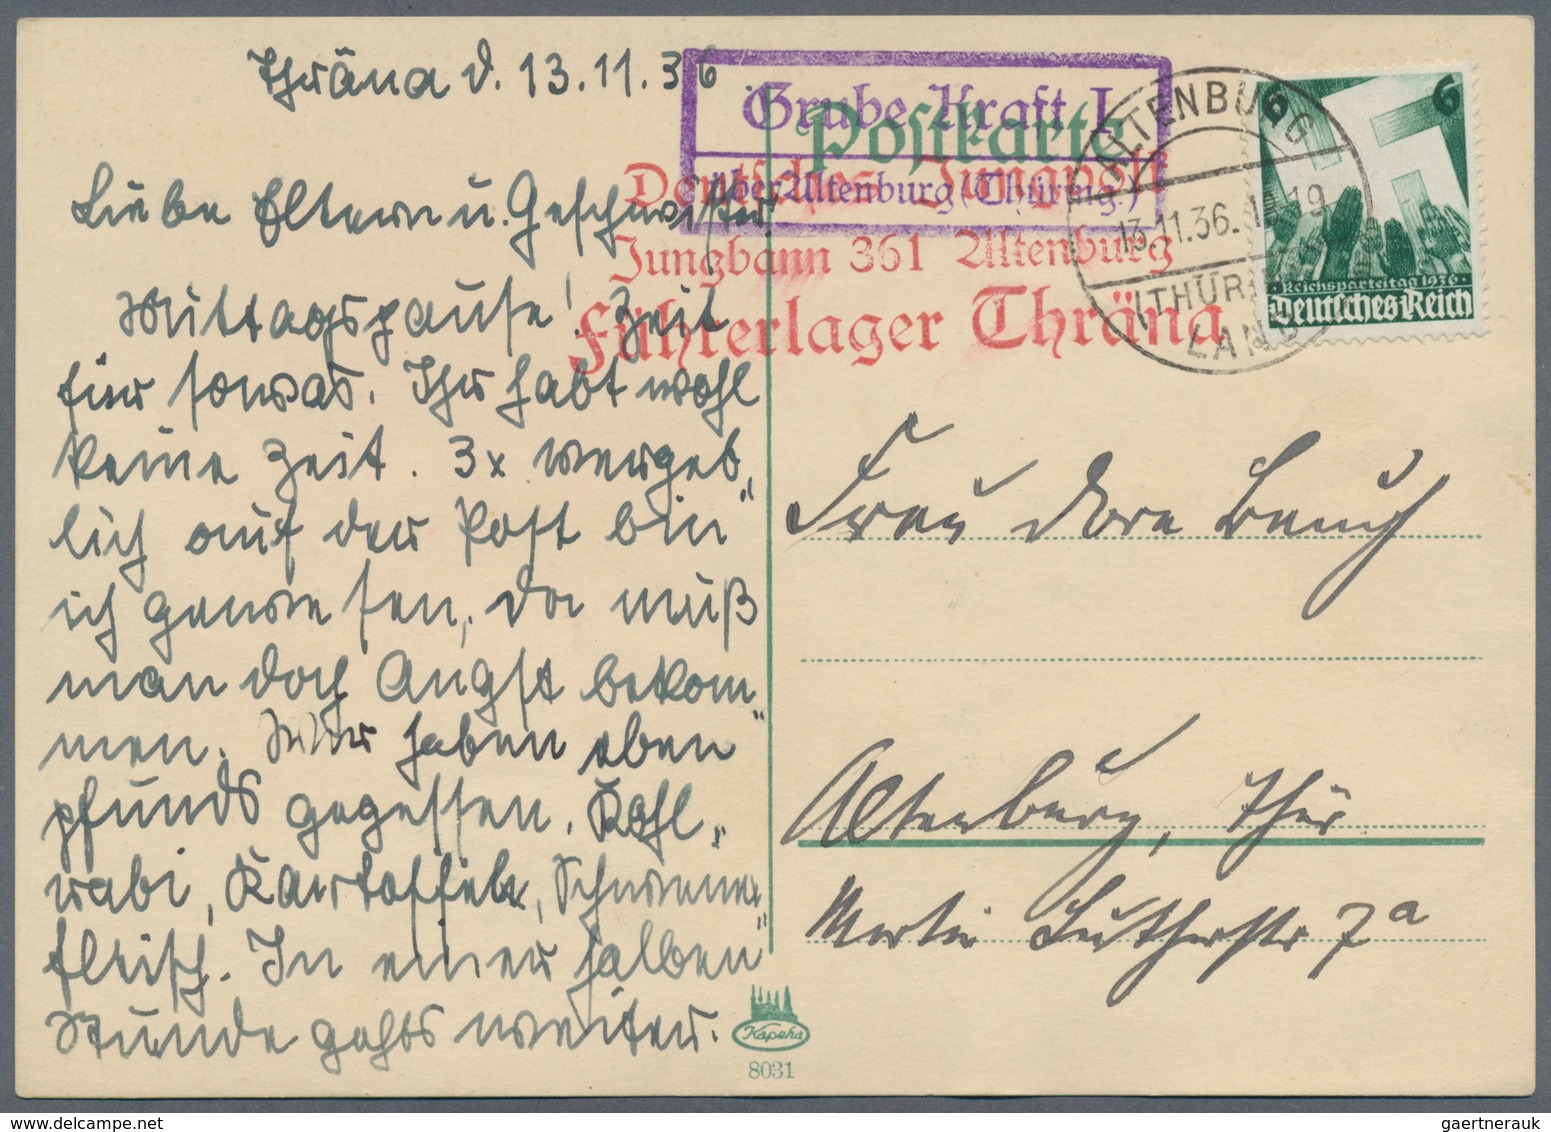 Thräna d. 13.11.36
Liebe Eltern u. Geschwister!
Mittagspause! Zeit
für sowas. Ihr habt wohl
keine Zeit. 3x vergeb„
lich auf der Post bin
ich gewesen, da muß
man doch Angst bekom„
men. Wir haben eben
pfunds gegessen. Kohl„
rabi, Kartoffeln, Schweine„
fleisch. In einer halben
Stunde gehts weiter.
Postkarte
Grube Kraft I
über Altenburg (Thüring.)
Deutsches Jungvolk
Jungbann 361 Altenburg
Führerlager Thräna
ALTENBURG
13.11.36. 19
(THÜR)
LAND
6 6
Reichsparteitag 1936
Deutsches Reich
Frau Dora
Altenburg, Thür
Martin Lutherstr 7a
Kapeha
8031
gaertnerauk